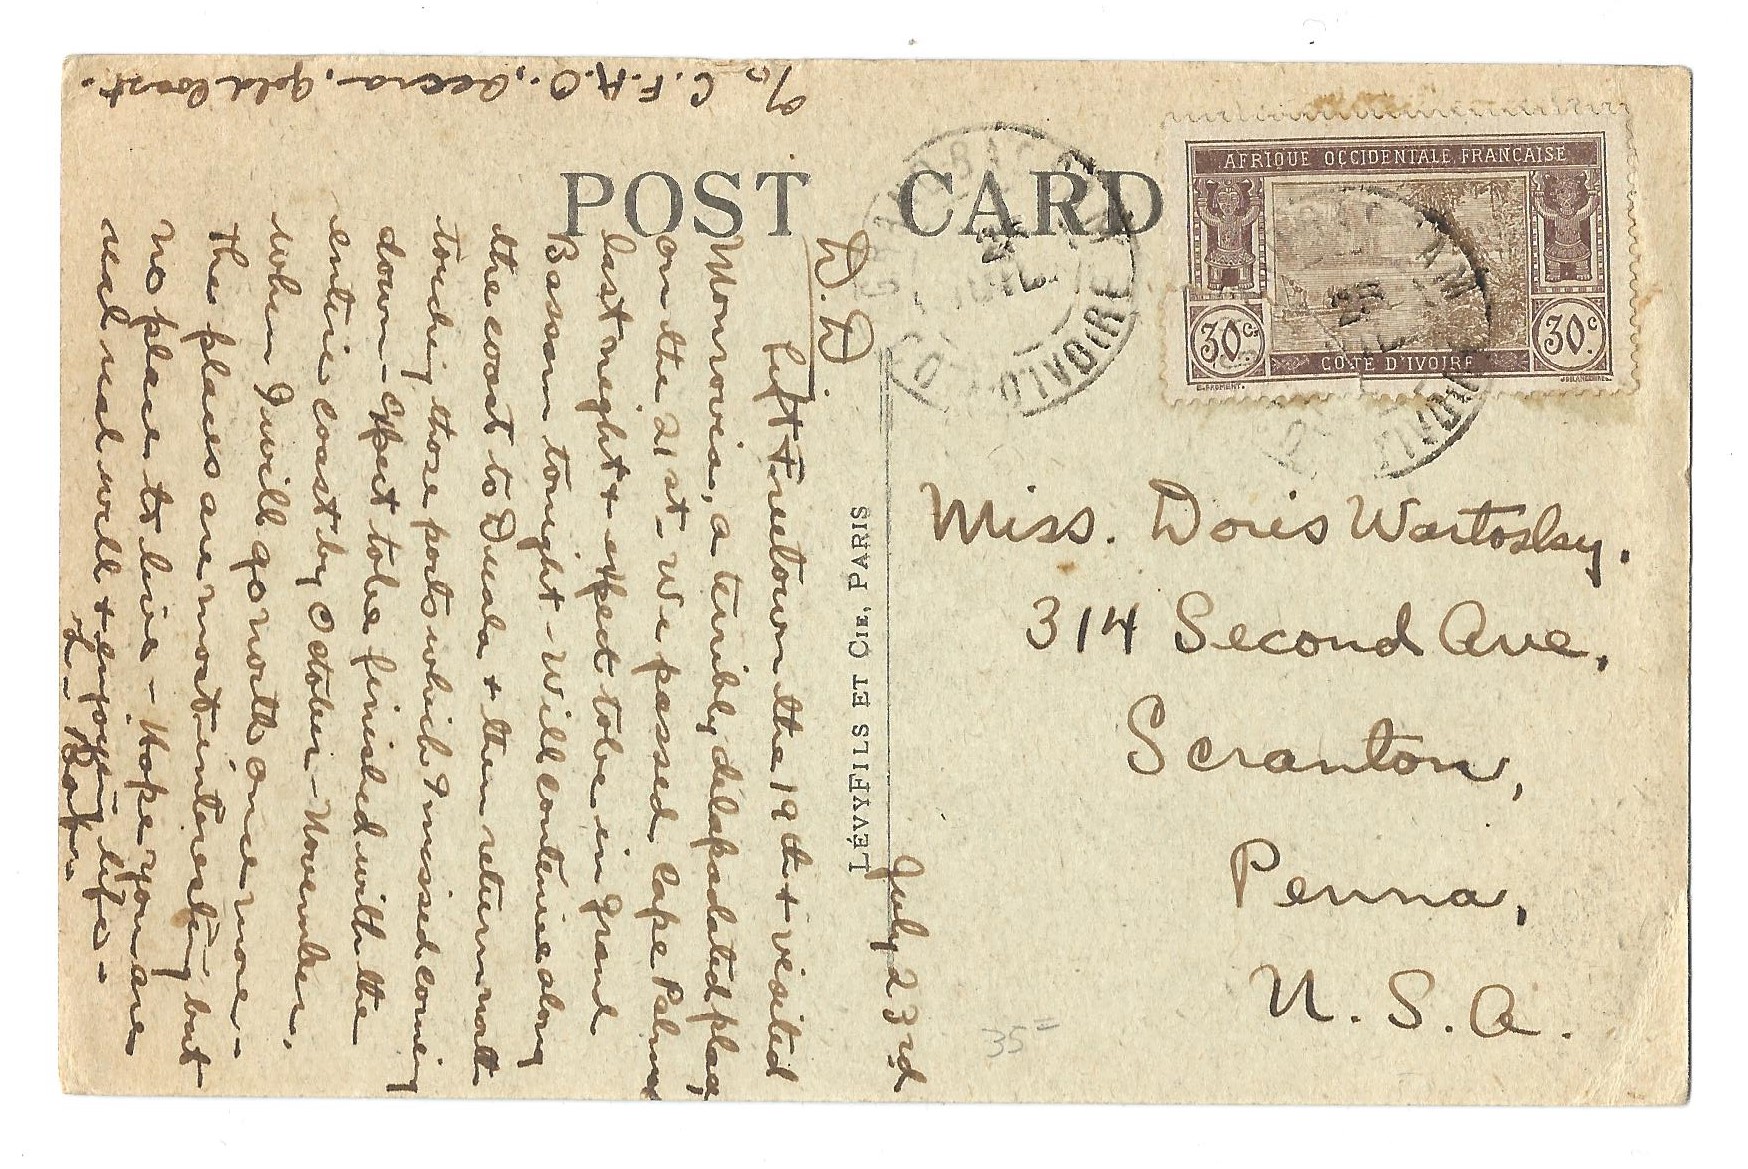 c/o C.F.A.O., Accra, Gold Coast.
POST CARD
AFRIQUE OCCIDENTALE FRANÇAISE
30c.
30c.
COTE D'IVOIRE
E. FROMENT.
GRAND BASSAM
COTE D'IVOIRE
LÉVY FILS ET CIE, PARIS
July 23rd
D. D.
Left Freetown the 19th + visited
Monrovia, a terribly delapadated place,
on the 21st - We passed Cape Palmas
last night + expect to be in Grand
Bassam tonight - Will continue along
the coast to Duala + then return north
touching those ports which I missed coming
down - Expect to be finished with the
entire coast by October - November,
when I will go north once more -
The places are most interesting but
no place to live - Hope you are
well + enjoying life -
Miss. Doris Wartosky.
314 Second Ave,
Scranton,
Penna,
U. S. A.
35=